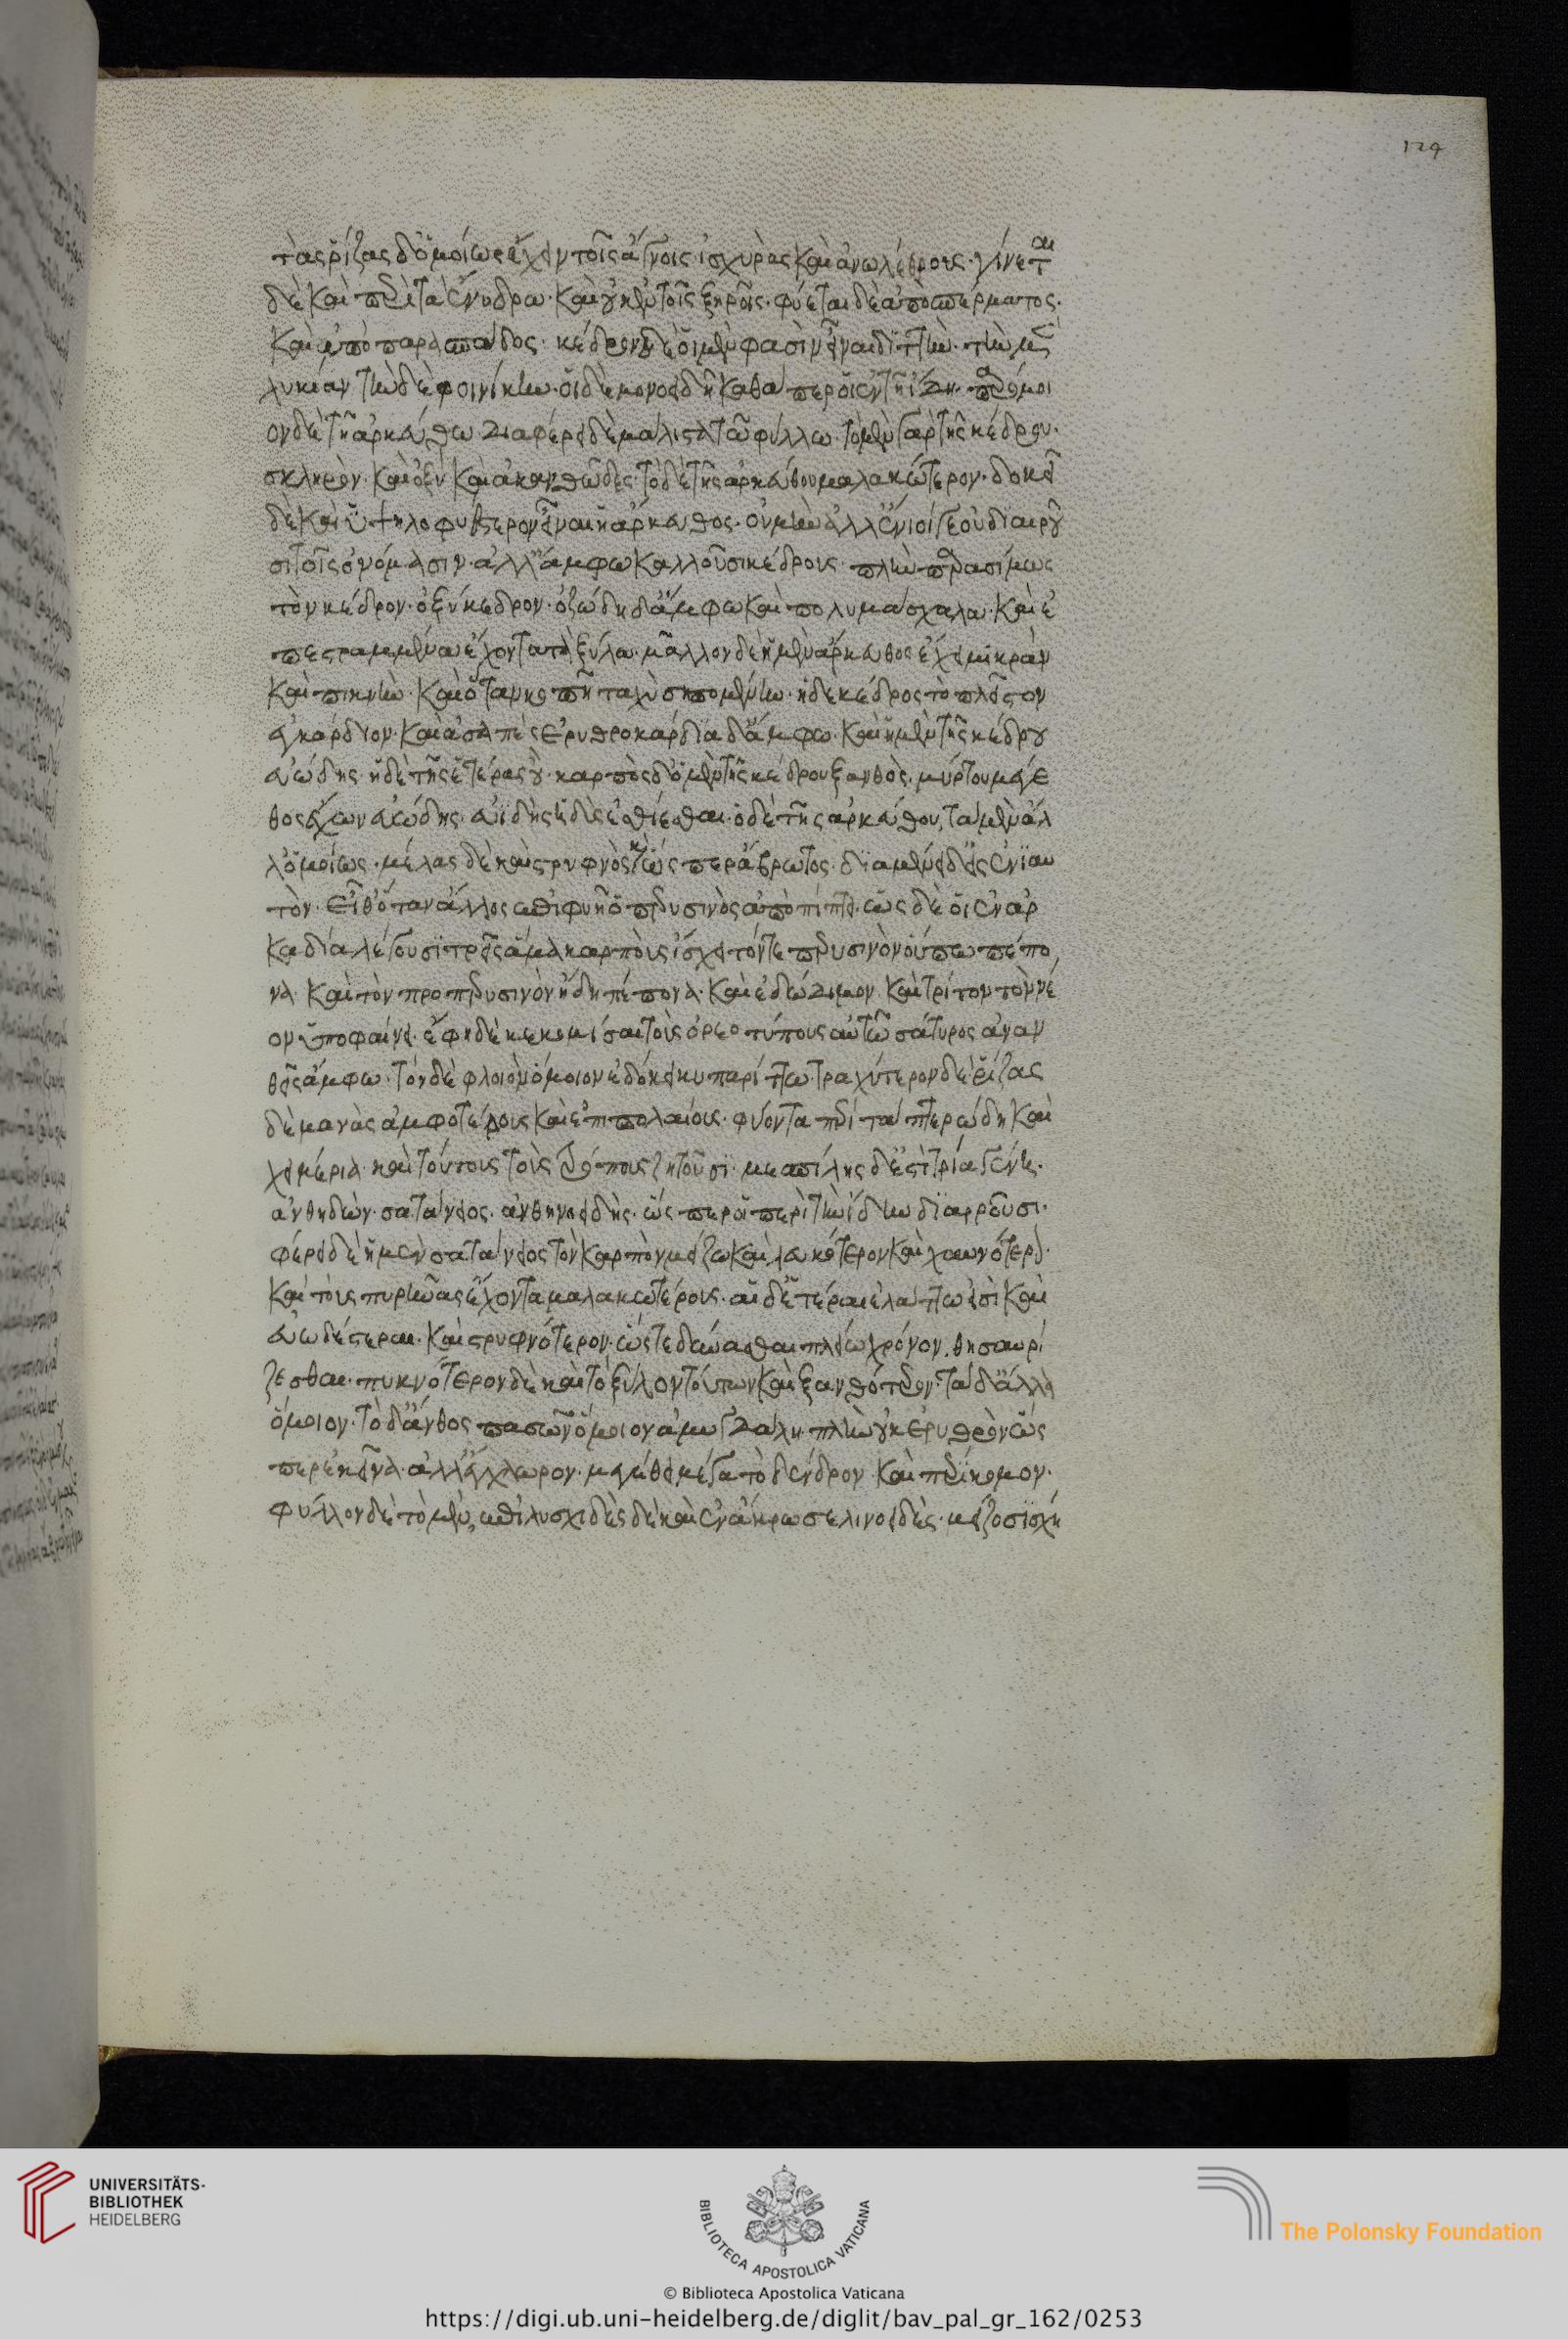 124
τὰς ῥίζας δ' ὁμοίως ἔχειν τοῖς ἀγνοις ἰσχυρὰς καὶ ἀνωλέθρους· γίνεται
δὲ καὶ περὶ τὰ ἔνυδρα· καὶ οὐκ ἐν τοῖς ξηροῖς· φύεται δὲ ἀπὸ σπέρματος·
καὶ ἀπὸ παρασπάδος· κέδρον δὲ οἱ μὲν φασὶν εἶναι διττὴν· τὴν μὲν
λυκίαν τὴν δὲ φοινίκην· οἱ δὲ μονοειδῆ καθάπερ οἱ ἐν τῆ ἴδη· παρόμοι
ον δὲ τῆ ἀρκεύθω διαφέρει δὲ μάλιστα τῶ φύλλω· τὸ μὲν γὰρ τῆς κέδρου·
σκληρὸν καὶ ὀξὺ καὶ ἀκανθῶδες· τὸ δὲ τῆς ἀρκεύθου μαλακώτερον· δοκεῖ
δὲ καὶ ὑψηλοφυέστερον εἶναι ἡ ἄρκευθος· οὐ μὴν ἀλλ' ἔνιοί γε οὐ διαιροῦ
σι τοῖς ὀνόμασιν· ἀλλ' ἄμφω καλλοῦσι κέδρους· πλὴν παρασίμως
τὸν κέδρον· ὀξύκεδρον· ὀζώδη δ' ἄμφω καὶ πολυμάσχαλα· καὶ ἐ
πεστραμμένα ἔχοντα τὰ ξύλα· μᾶλλον δὲ ἡ μὲν ἄρκευθος ἔχει μικρὰν
καὶ πυκνὴν· καὶ ὅταν κοπῆ ταχὺ σηπομένην· ἡ δὲ κέδρος τὸ πλεῖστον
ἐγκάρδιον· καὶ ἀσαπὲς ἐρυθροκάρδια δ' ἄμφω· καὶ ἡ μὲν τῆς κέδρου
εὐώδης· ἡ δὲ τῆς ἑτέρας οὐ· καρπὸς δ' ὁ μὲν τῆς κέδρου ξανθὸς· μύρτου μέγε
θος ἔχων εὐώδης· ἡδὺς ἐσθίεσθαι· ὁ δὲ τῆς ἀρκεύθου, τὰ μὲν ἄλ
λ' ὁμοίως· μέλας δὲ καὶ στρυφνὸς καὶ ὥσπερ ἄβρωτος· διαμένει δ' εἰς ἐνιαυ
τὸν· εἶθ' ὅταν ἄλλος ἐπιφυῆ ὁ περυσινὸς ἀποπίπτει· ὡς δὲ οἱ ἐν ἀρ
καδία λέγουσι τρεῖς ἅμα καρποὺς ἴσχει τόν τε περυσινὸν οὔπω πέπο
να καὶ τὸν προπερυσινὸν ἤδη πέπονα καὶ ἐδώδιμον καὶ τρίτον τὸν νέ
ον ὑποφαίνει· ἔφη δὲ κεκομίσαι τοὺς ὀρεοτύπους αὐτῶ σάτυρος ἀναν
θεῖς ἄμφω· τὸν δὲ φλοιὸν ὅμοιον ἐδόκει κυπαρίττω τραχύτερον δὲ ῥίζας
δὲ μανὰς ἀμφοτέρους καὶ ἐπιπολαίους· φύονται περὶ τὰ πετρώδη καὶ
χειμέρια καὶ τούτους τοὺς τόπους ζητοῦσι· μεσπίλης δ' ἐστὶ τρία γένη·
ἀνθηδὼν· σατάνειος· ἀνθηνοειδὴς· ὥσπερ οἱ περὶ τὴν ἴδην διαιροῦσι·
φέρει δὲ ἡ μὲν σατάνειος τὸν καρπὸν μείζω καὶ λευκότερον καὶ χαυνότερον·
καὶ τοὺς πυρῆνας ἔχοντα μαλακωτέρους· αἱ δ' ἕτεραι ἐλάττω εἰσὶ καὶ
εὐωδέστεραι· καὶ στρυφνότερον· ὥστε δύνασθαι πλείω χρόνον θησαυρί
ζεσθαι· πυκνότερον δὲ καὶ τὸ ξύλον τούτων καὶ ξανθότερον· τὰ δ' ἄλλα
ὅμοιον· τὸ δ' ἄνθος πασῶν ὅμοιον ἀμυγδάλη· πλὴν οὐκ ἐρυθρὸν ὥς
περ ἐκεῖνα· ἀλλ' ἐγχλωρον· μεγέθει μέγα τὸ δένδρον καὶ περίκομον·
φύλλον δὲ τὸ μὲν, ἐπὶ πολυσχιδὲς δὲ καὶ ἐν ἄκρω σελινοειδὲς·
UNIVERSITÄTS-
BIBLIOTHEK
HEIDELBERG
BIBLIOTECA APOSTOLICA VATICANA
The Polonsky Foundation
© Biblioteca Apostolica Vaticana
https://digi.ub.uni-heidelberg.de/diglit/bav_pal_gr_162/0253